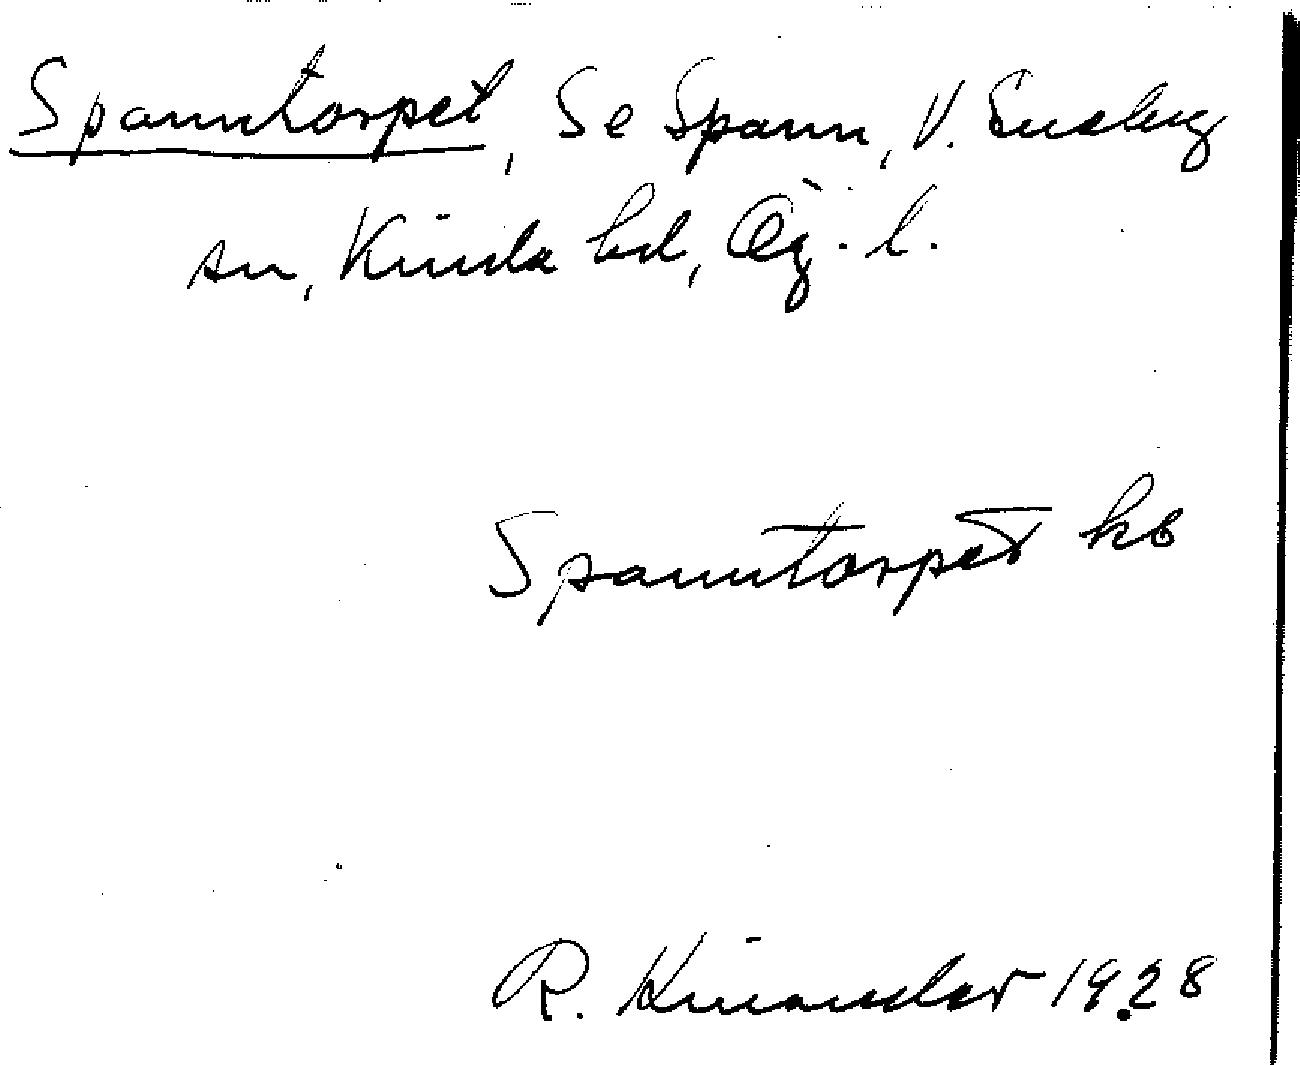 Spanntorpet, Se Spann, V. Eneby
sn, Kinda hd, Ög. l.
Spanntorpet kb
R. Kinander 1928